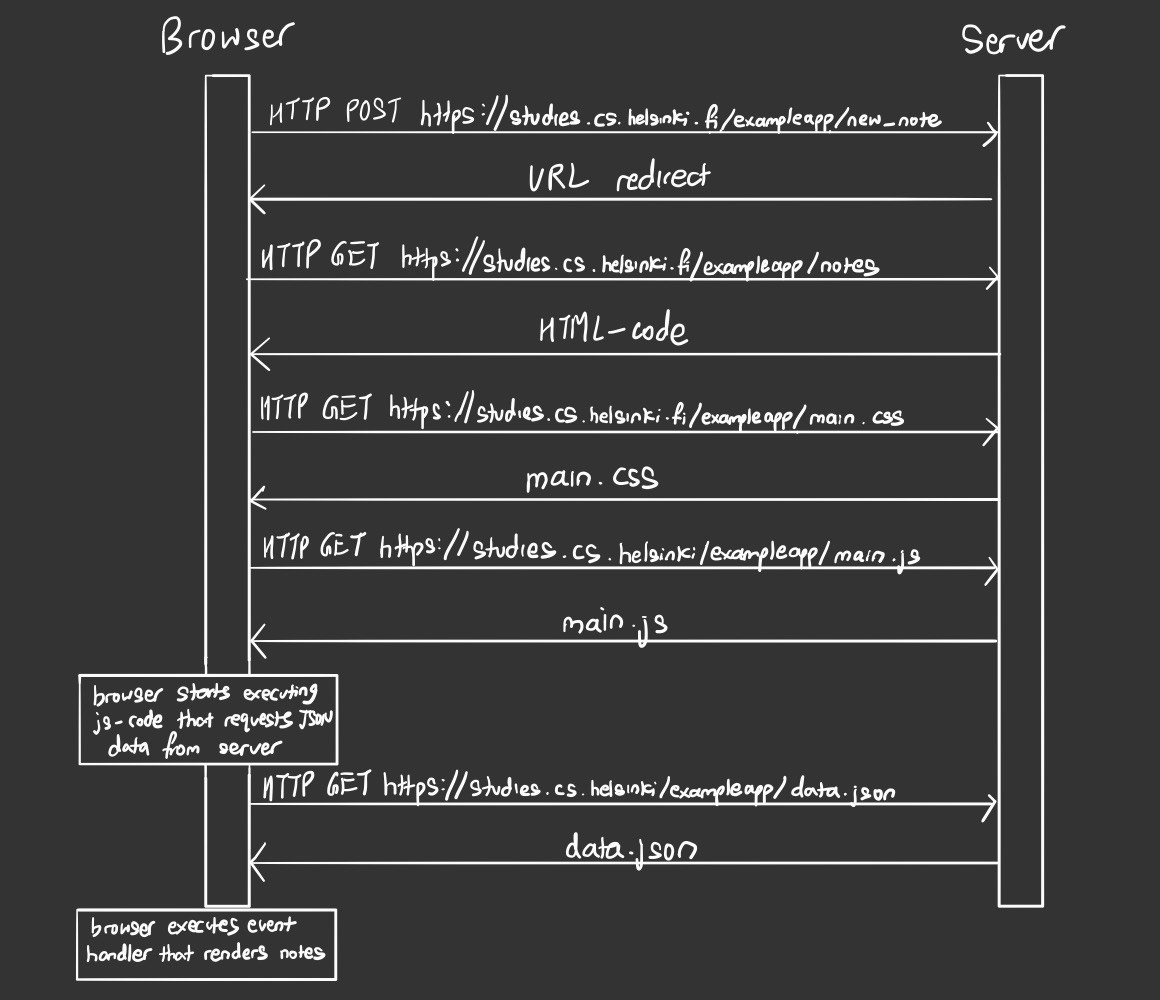 Browser
Server
HTTP POST https://studies.cs.helsinki.fi/exampleapp/new_note
URL redirect
HTTP GET https://studies.cs.helsinki.fi/exampleapp/notes
HTML-code
HTTP GET https://studies.cs.helsinki.fi/exampleapp/main.css
main.css
HTTP GET https://studies.cs.helsinki/exampleapp/main.js
main.js
browser starts executing
js-code that requests JSON
data from server
HTTP GET https://studies.cs.helsinki/exampleapp/data.json
data.json
browser executes event
handler that renders notes